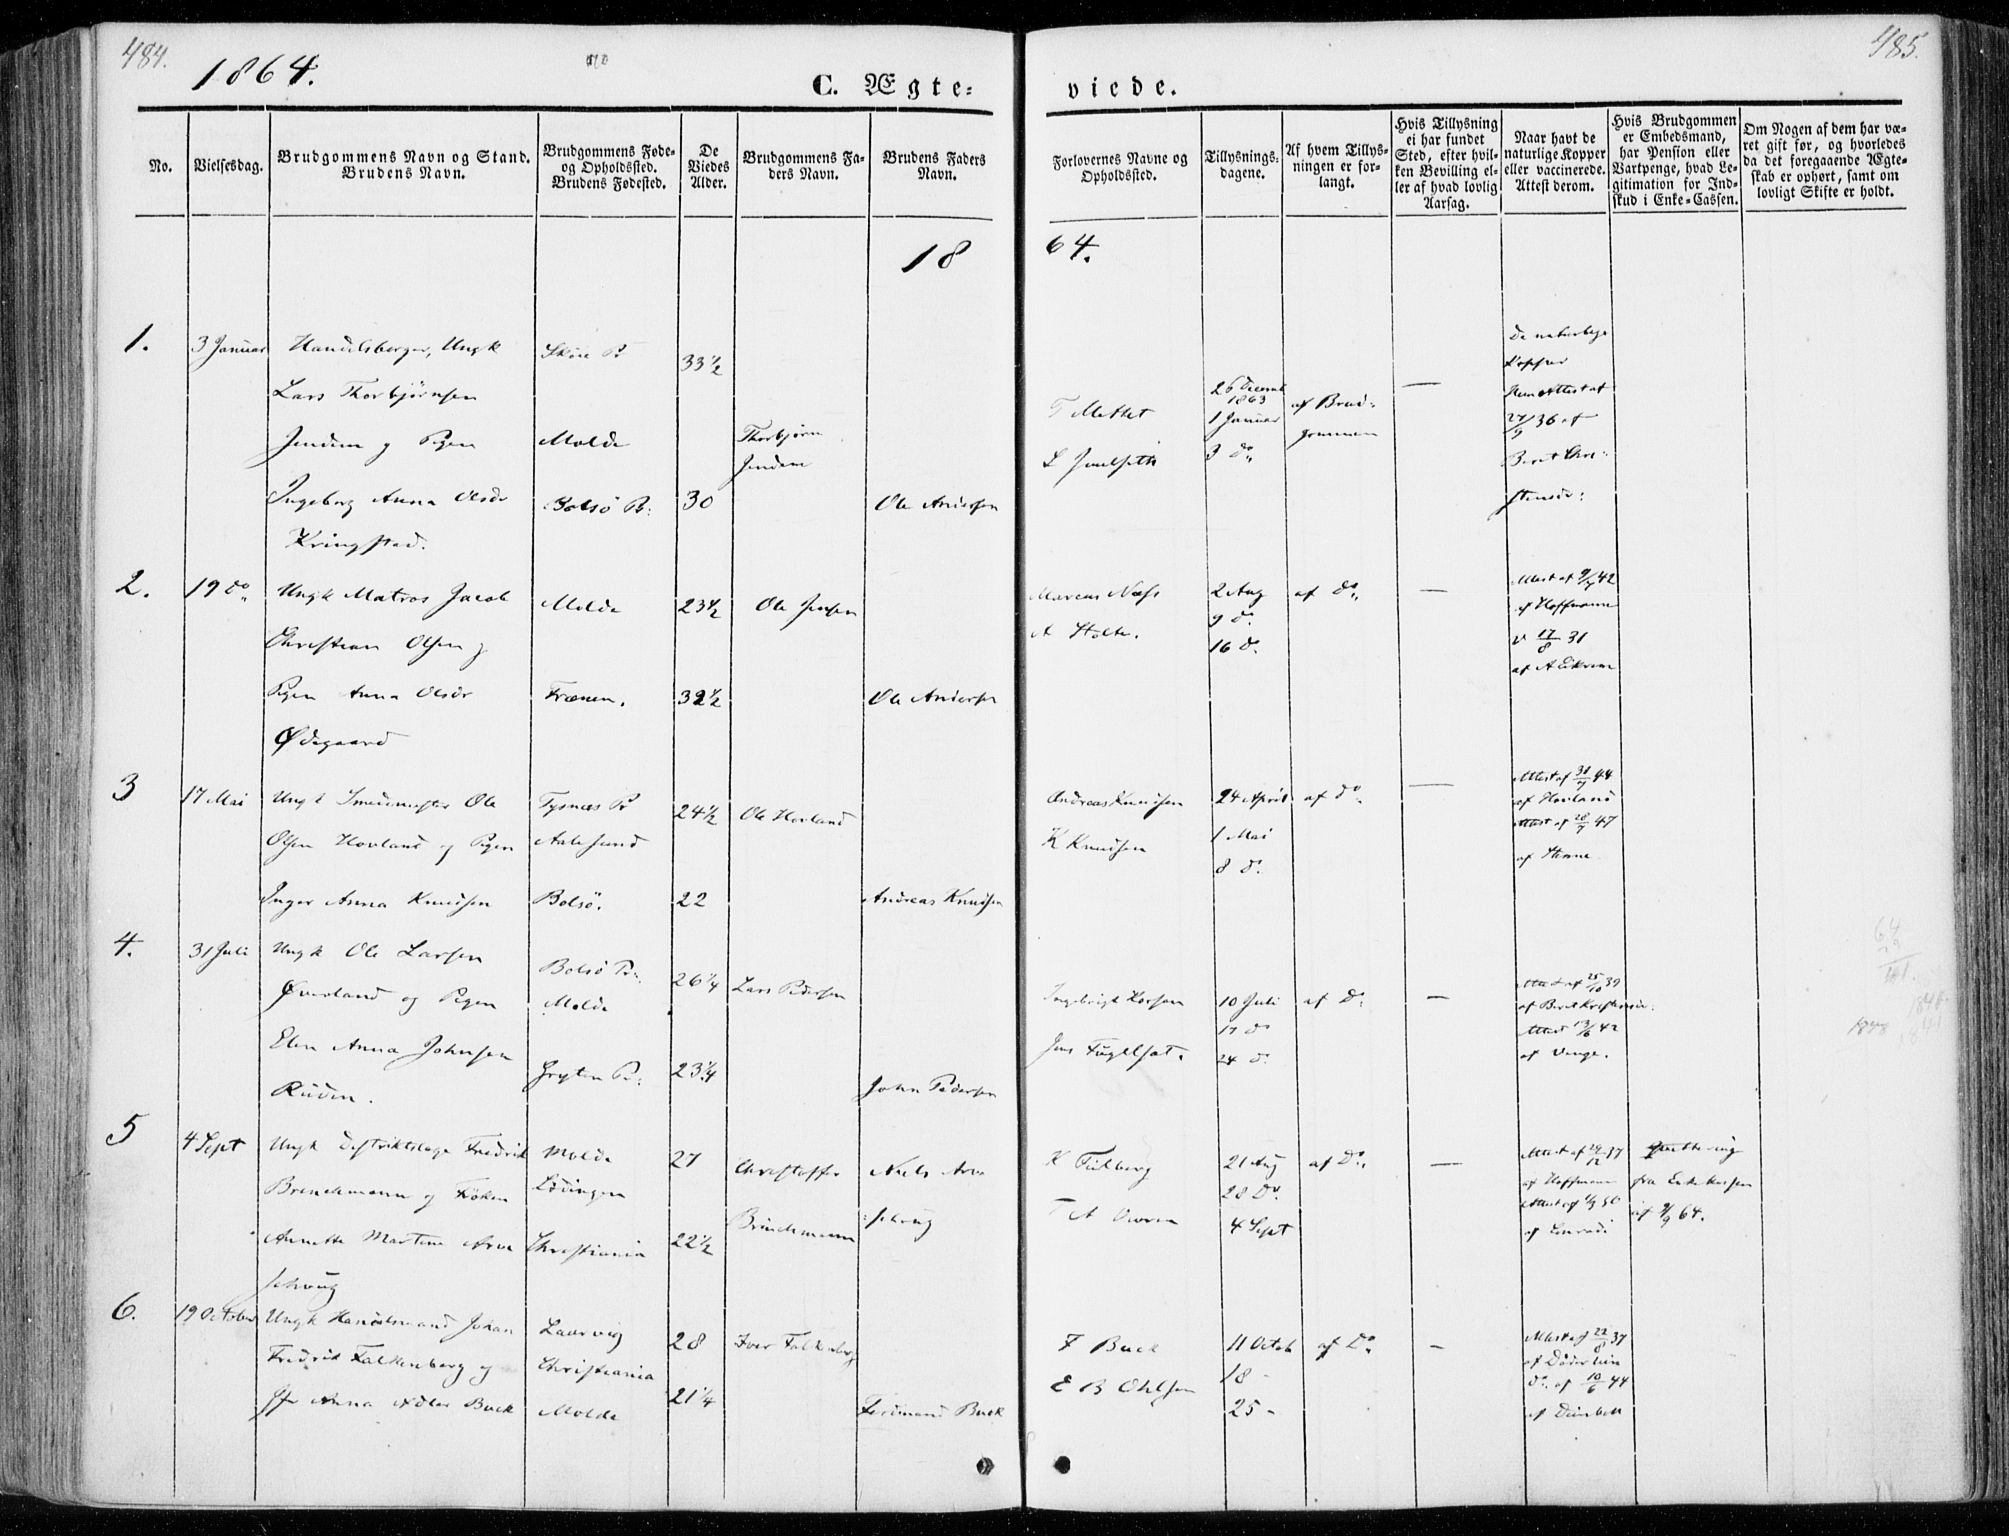 484.
1864.
C. Ægte=
No.
Vielsesdag.
Brudgommens Navn og Stand.
Brudens Navn.
Brudgommens Føde=
og Opholdssted.
Brudens Fødested.
De
Viedes
Alder.
Brudgommens Fa=
ders Navn.
Brudens Faders
Navn.
18
1.
3 Januar
Handelsborger, Ungk
Lars Thorbjørnsen
Jendem og Pigen
Ingeborg Anna Olsdr
Kringstad.
Molde
Bolsö Pr:
33½
30
Thorbjørn
Jendem
Ole Andersen
2.
19 do
Ungk Matros Jacob
Christian Olsen og
Pigen Anna Olsdr
Ødegaard
Molde
Frænen.
23½
32½
Ole Jensen
Ole Andersen
3
17 Mai
Ungk Smedemester Ole
Olsen Hovland og Pigen
Inger Anna Knudsen
Tysnæs Pr
Aalesund
Bolsö.
24½
22
Ole Hovland
Andreas Knudsen
4.
31 Juli
Ungk Ole Larsen
Øverland og Pigen
Elen Anna Johnsen
Ruden.
Bolsö Pr:
Molde
Gryten Pr:
26¼
23¼
Lars Pedersen
John Pedersen
5
4 Sept
Ungk Distriktslæge Fredrik
Brinchmann og Frøken
Annette Martine Arve
schoug
Molde
Lödingen
Christiania
27
22½
Christoffer
Brinchmann
Niels Arve
schoug
6.
19 October
Ungk Handelsmand Johan
Fredrik Falkenberg og
Jfr Anna Adler Buck
Laurvig
Christiania
Molde
28
21¼
Iver Falkenberg
Ferdinand Buck
485.
viede.
Forlovernes Navne og
Opholdssted.
Tillysnings=
dagene.
Af hvem Tillys=
ningen er for=
langt.
Hvis Tillysning
ei har fundet
Sted, efter hvil=
ken Bevilling el=
ler af hvad lovlig
Aarsag.
Naar havt de
naturlige Kopper
eller vaccinerede.
Attest derom.
Hvis Brudgommen
er Embedsmand,
har Pension eller
Vartpenge, hvad Le=
gitimation for Ind=
skud i Enke=Cassen.
Om Nogen af dem har væ=
ret gift før, og hvorledes
da det foregaaende Ægte=
skab er ophørt, samt om
lovligt Skifte er holdt.
64.
26 Decemb
1863
1 Januar
3 do
af Brud=
gommen
—
de naturlige
Kopper
27/9 36 af
Berit Chri=
stensdr:
Marcus Næss
A Holte.
2 Aug
9 do
16 do
af do
—
Attest af 9/7 42
af Hoffmann
17/8 31
Andreas Knudsen
K Knudsen
24 April
1 Mai
8 do
af do
—
af Hovland
Attest af 28/7 47
Ingebrigt Larsen
10 Juli
17 do
24 do
af do
—
Attest af 25/10 39
af Berit Kristensdr:
Attest 13/6 42
af Venge.
21 Aug
28 do
4 Sept
af do
—
Attest af 29/12 37
af Hoffmann
af Conradi
Qvittering
fra Enkekassen
af 9/9 64.
F Buck
E B Ohlsen
11 Octob
18 -
25 -
af do
—
Attest af 22/8 37
do af 10/6 44